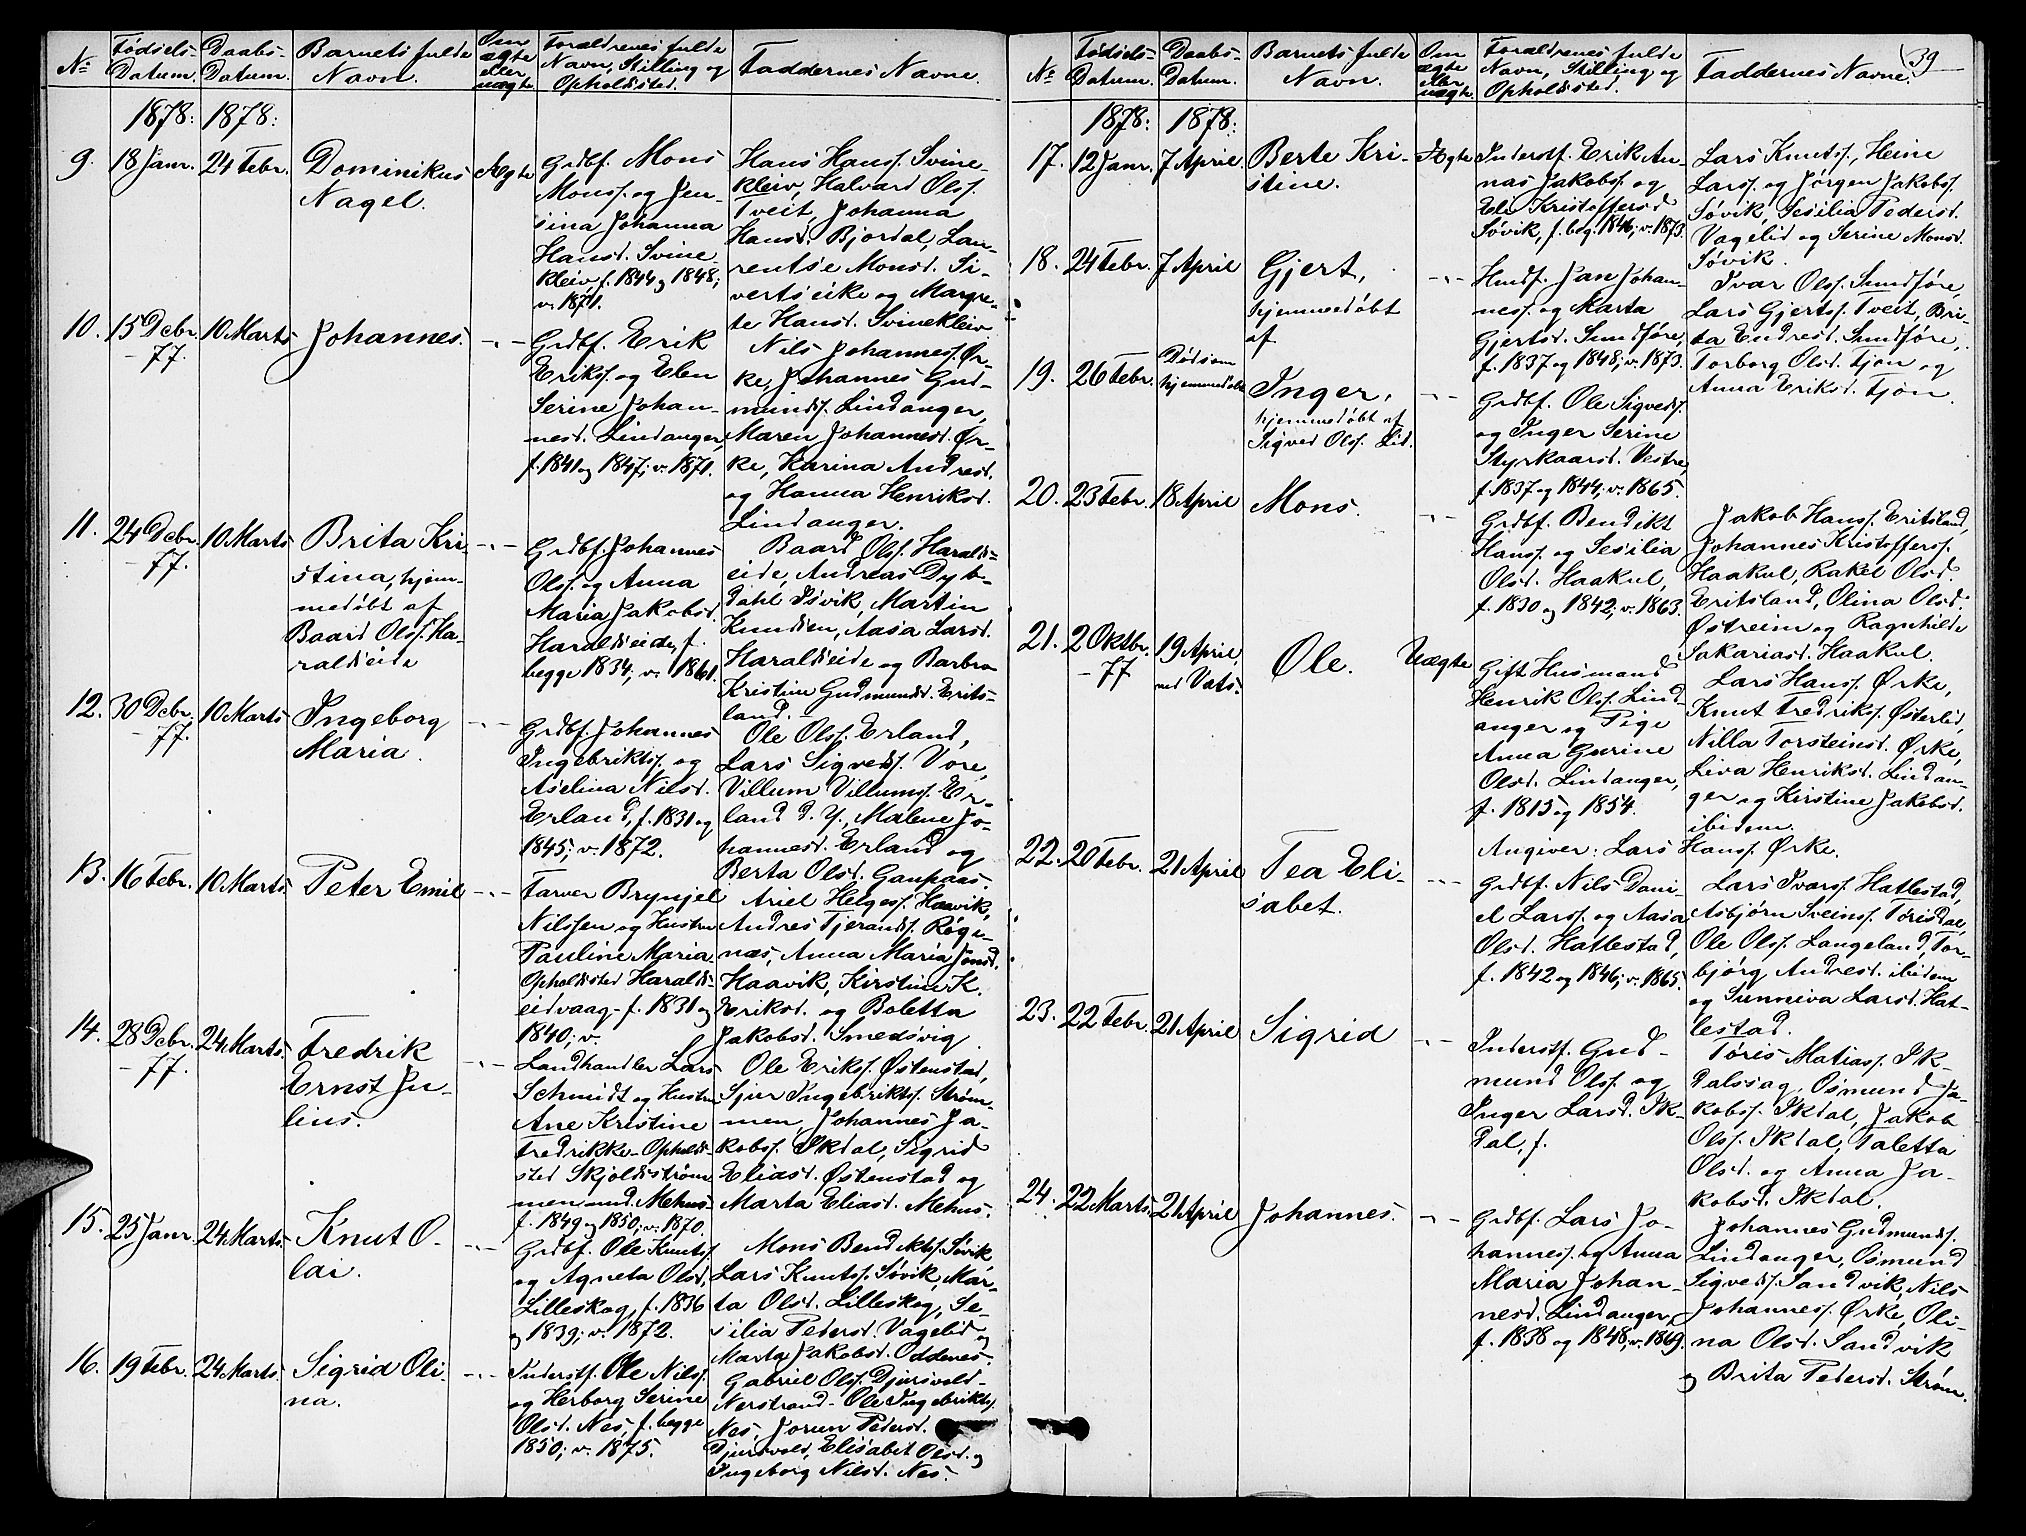 No
Fødsels-
Datum.
Daabs-
Datum.
Barnets fulde
Navn.
Om
ægte
eller
uægte
Forældrenes fulde
Navn, Stilling og
Opholdssted.
Faddernes Navne.
1878: 1878:
9. 18 Janr. 24 Febr. Dominikus
Nagel.
Ægte
Grdbf. Mons
Monss. og Jen-
sina Johanna
Hansd. Svine-
kleiv, f. 1844 og 1848;
v. 1871.
Hans Hanss. Svine-
kleiv, Halvard Olss.
Tveit, Johanna
Hansd. Bjordal, Lau-
rentse Monsd. Si-
vertseike og Margre-
te Hansd. Svinekleiv
10. 15 Dcbr.
-77.
10 Marts Johannes. -"-
Grdbf. Erik
Erikss. og Elen
Serine Johan-
nesd. Lindanger,
f. 1841 og 1847; v. 1871.
Nils Johanness. Ør-
ke, Johannes Gud-
munds. Lindanger,
Maren Johannesd. Ør-
ke, Karina Andresd.
og Hanna Henriksd.
Lindanger.
11. 24 Dcbr.
-77.
10 Marts Brita Kri-
stina, hjem-
medøbt af
Baard Olss. Ha-
raldseide
-"-
Grdbf. Johannes
Olss. og Anna
Maria Jakobsd.
Haraldseide, f.
begge 1834; v. 1861.
Baard Olss. Haralds-
eide, Andreas Dyb-
dahl Isvik, Martin
Knudsen, Aasa Larsd.
Haraldseide og Barbro
Kristine Gudmundsd. Erits-
land.
12. 30 Dcbr.
-77.
10 Marts Ingeborg
Maria.
-"-
Grdbf. Johannes
Ingebriktss. og
Aselina Nilsd.
Erland, f. 1831 og
1845; v. 1872.
Ole Olss. Erland,
Lars Sigvedss. Vore,
Villum Villumss. Er-
land d. Y., Malene Jo-
hannesd. Erland og
Berta Olsd. Gaupaas.
13. 16 Febr. 10 Marts. Peter Emil -"-
Farver Brynjel
Nilssen og Hustru
Pauline Maria
Opholdssted Haralds-
eidvaag - f. 1831 og
1840; v.
Ariel Helgess. Haavik,
Andres Tjerandss. Røge-
næs, Anna Maria Jonsd.
Haavik, Kirstine K.
Eriksd. og Boletta
Jakobsd. Smedsvig
14. 28 Dcbr.
-77.
24 Marts. Fredrik
Ernst Ju-
lius.
-"-
Landhandler Lars
Schmidt og Hustru
Ane Kristine
Fredrikke - Opholds-
sted Skjoldstrøm-
men und. Mehus -
f. 1849 og 1850; v. 1870.
Ole Erikss. Østenstad,
Sjur Ingebriktss. Strøm-
men, Johannes Ja-
kobss. Skdal, Sigrid
Eliasd. Østenstad og
Marta Eliasd. Mehus.
15. 25 Janr. 24 Marts. Knut O-
lai.
-"-
Grdbf. Ole Knutss.
og Agneta Olsd.
Lilleskog, f. 1836
og 1839; v. 1872.
Mons Bendiktss. Søvik
Lars Knutss. Søvik, Mar-
ta Olsd. Lilleskog, Se-
silia Pedersd. Vagelid og
Marta Jakobsd. Oddenes.
16. 19 Febr. 24 Marts. Sigrid Oli-
na.
-"-
Inderstf. Ole Nilss.
og Herborg Serine
Olsd. Nes, f. begge
1850; v. 1875.
Gabriel Olss. Djursvold
Nerstrand - Ole Ingebriktss.
Nes, Jorun Pedersd.
Djursvold, Elisabet Olsd. og
Ingeborg Nilsd. Nes.
39
No
Fødsels-
Datum.
Daabs-
Datum.
Barnets fulde
Navn.
Om
ægte
eller
uægte
Forældrenes fulde
Navn, Stilling og
Opholdssted.
Faddernes Navne.
1878: 1878:
17. 12 Janr. 7 April Berte Kri-
stine.
Ægte
Inderstf. Erik An-
nas Jakobss. og
Eli Kristoffersd.
Søvik, f. beg. 1846; v. 1873.
Lars Knutss., Heine
Larss. og Jørgen Jakobss.
Søvik, Sesilia Pedersd.
Vagelid og Serine Monsd.
Søvik.
18. 24 Febr. 7 April Gjert,
hjemmedøbt
af
-"-
Husmf. Jan Johan-
ness. og Marta
Gjertsd. Sundføre,
f. 1837 og 1848; v. 1873.
Ivar Olss. Sundføre,
Lars Gjertss. Tveit, Bri-
ta Endresd. Sundføre,
Torborg Olsd. Tjøn og
Anna Eriksd. Tjøn.
19. 26 Febr. Død som
hjemmedøbt
Inger,
hjemmedøbt af
Sigved Olss. Lid.
-"-
Grdbf. Ole Sigvedss.
og Inger Serine
Styrkaarsd. Vestre,
f. 1837 og 1844; v. 1865.
20. 23 Febr. 18 April Mons. -"-
Grdbf. Bendikt
Hanss. og Sesilia
Olsd. Haakul,
f. 1830 og 1842; v. 1863.
Jakob Hanss. Eritsland,
Johannes Kristofferss.
Haakul, Rakel Olsd.
Eritsland, Olina Olsd.
Østreim og Ragnhilde
Sakariasd. Haakul.
21. 2 Oktbr.
-77
19 April
ned Vats.
Ole. Uægte
Gift Husmand
Henrik Olss. Lind-
anger og Pige
Anna Gurine
Olsd. Lindanger,
f. 1815 og 1854.
Lars Hanss. Ørke,
Knut Fredrikss. Østerlid,
Nilla Torsteinsd. Ørke,
Liva Henriksd. Lindan-
ger og Kirstine Jakobsd.
ibidem.
Angiver: Lars Hanss. Ørke.
22. 20 Febr. 21 April Tea Eli-
sabet.
-"-
Grdbf. Nils Dani-
el Larss. og Aasa
Olsd. Hatlestad,
f. 1842 og 1846; v. 1865.
Lars Ivarss. Hatlestad,
Asbjørn Sveinss. Tørisdal,
Ole Olss. Langeland, Tor-
bjørg Andresd. ibidem
og Sunniva Larsd. Hat-
lestad.
23. 22 Febr. 21 April Sigrid -"-
Inderstf. Gud-
mund Olss. og
Inger Larsd. Ik-
dal, f.
Tøris Matiass. Ik-
dalssag, Osmund Ja-
kobss. Ikdal, Jakob
Olss. Ikdal, Taletta
Olsd. og Anna Ja-
kobsd. Ikdal.
24. 22 Marts. 21 April Johannes. -"-
Grdbf. Lars Jo-
hanness. og Anna
Maria Johan-
nesd. Lindanger,
f. 1838 og 1848; v. 1869.
Johannes Gudmundss.
Lindanger, Osmund
Sigvedss. Sandvik, Nils
Johanness. Ørke, Oli-
na Olsd. Sandvik
og Brita Pedersd. Strøm.